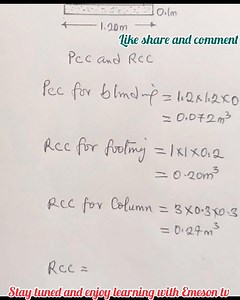 0.1m
1.20m
Like share and comment
Pcc and Rcc
Pcc for blinding = 1.2x1.2x0
= 0.072m³
RCC for footing = 1x1x0.2
= 0.20m³
RCC for Column = 3x0.3x0.3
= 0.27m³
RCC =
Stay tuned and enjoy learning with Emeson tv